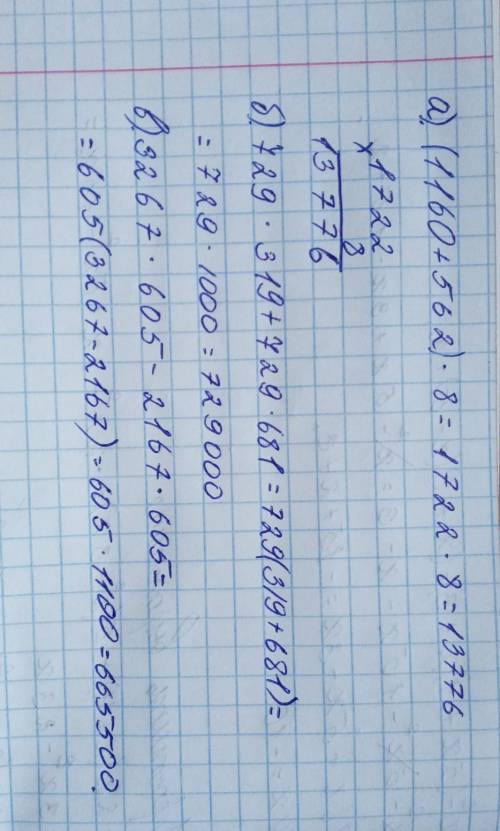 а) (1160+562)·8=1722·8=13776
×1722
8
13776
б) 729·319+729·681=729(319+681)=
=729·1000=729000
в) 3267·605-2167·605=
=605(3267-2167)=605·1100=665500.